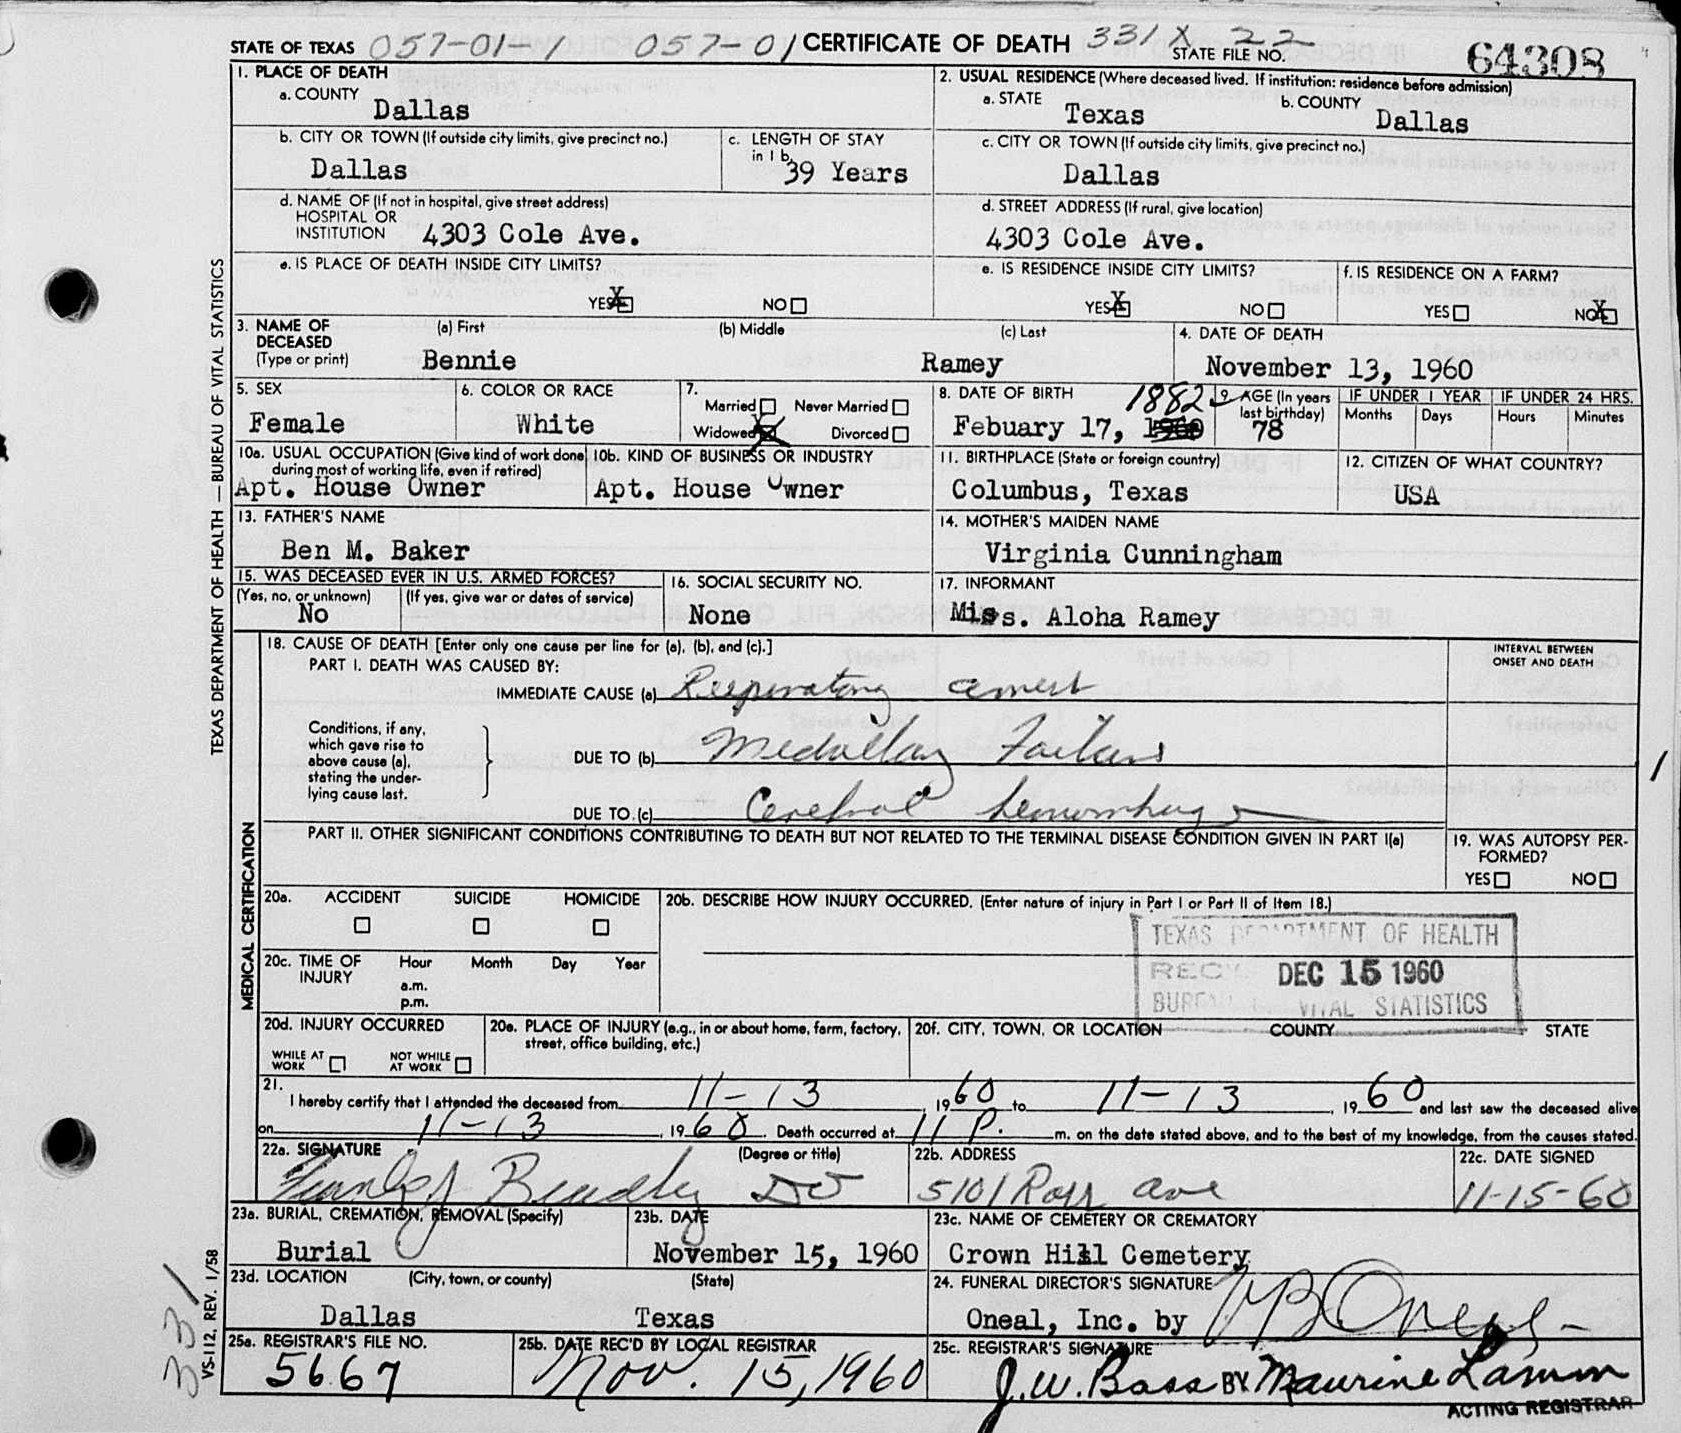 STATE OF TEXAS 057-01-1 057-01 CERTIFICATE OF DEATH 331X 22 STATE FILE NO. 64308
1. PLACE OF DEATH
a. COUNTY Dallas
2. USUAL RESIDENCE (Where deceased lived. If institution: residence before admission)
a. STATE Texas b. COUNTY Dallas
b. CITY OR TOWN (If outside city limits, give precinct no.) Dallas
c. LENGTH OF STAY in 1 b. 39 Years
c. CITY OR TOWN (If outside city limits, give precinct no.) Dallas
d. NAME OF (If not in hospital, give street address)
HOSPITAL OR
INSTITUTION 4303 Cole Ave.
d. STREET ADDRESS (If rural, give location)
4303 Cole Ave.
e. IS PLACE OF DEATH INSIDE CITY LIMITS?
YES X NO
e. IS RESIDENCE INSIDE CITY LIMITS?
YES X NO
f. IS RESIDENCE ON A FARM?
YES NO X
3. NAME OF DECEASED (Type or print)
(a) First (b) Middle (c) Last
Bennie Ramey
4. DATE OF DEATH
November 13, 1960
5. SEX
Female
6. COLOR OR RACE
White
7.
Married Never Married
Widowed X Divorced
8. DATE OF BIRTH 1882
Febuary 17, 1960
9. AGE (In years last birthday)
78
IF UNDER 1 YEAR
Months Days
IF UNDER 24 HRS.
Hours Minutes
10a. USUAL OCCUPATION (Give kind of work done during most of working life, even if retired)
Apt. House Owner
10b. KIND OF BUSINESS OR INDUSTRY
Apt. House Owner
11. BIRTHPLACE (State or foreign country)
Columbus, Texas
12. CITIZEN OF WHAT COUNTRY?
USA
13. FATHER'S NAME
Ben M. Baker
14. MOTHER'S MAIDEN NAME
Virginia Cunningham
15. WAS DECEASED EVER IN U.S. ARMED FORCES?
(Yes, no, or unknown) (If yes, give war or dates of service)
No
16. SOCIAL SECURITY NO.
None
17. INFORMANT
Miss. Aloha Ramey
18. CAUSE OF DEATH [Enter only one cause per line for (a), (b), and (c).]
PART I. DEATH WAS CAUSED BY:
INTERVAL BETWEEN
ONSET AND DEATH
IMMEDIATE CAUSE (a) Respiratory arrest
Conditions, if any,
which gave rise to
above cause (a),
stating the under-
lying cause last.
DUE TO (b) Medullary Failure
DUE TO (c) Cerebral hemorrhage
PART II. OTHER SIGNIFICANT CONDITIONS CONTRIBUTING TO DEATH BUT NOT RELATED TO THE TERMINAL DISEASE CONDITION GIVEN IN PART I(a)
19. WAS AUTOPSY PER-
FORMED?
YES NO
20a. ACCIDENT SUICIDE HOMICIDE
20b. DESCRIBE HOW INJURY OCCURRED. (Enter nature of injury in Part I or Part II of Item 18.)
TEXAS DEPARTMENT OF HEALTH
REC DEC 15 1960
BUREAU OF VITAL STATISTICS
20c. TIME OF INJURY
Hour Month Day Year
a.m.
p.m.
20d. INJURY OCCURRED
WHILE AT WORK NOT WHILE AT WORK
20e. PLACE OF INJURY (e.g., in or about home, farm, factory,
street, office building, etc.)
20f. CITY, TOWN, OR LOCATION COUNTY STATE
21.
I hereby certify that I attended the deceased from 11-13, 1960 to 11-13, 1960 and last saw the deceased alive
on 11-13, 1960. Death occurred at 11 P. m. on the date stated above, and to the best of my knowledge, from the causes stated.
22a. SIGNATURE (Degree or title)
Bradley DO
22b. ADDRESS
5101 Ross Ave
22c. DATE SIGNED
11-15-60
23a. BURIAL, CREMATION, REMOVAL (Specify)
Burial
23b. DATE
November 15, 1960
23c. NAME OF CEMETERY OR CREMATORY
Crown Hill Cemetery
23d. LOCATION (City, town, or county) (State)
Dallas Texas
24. FUNERAL DIRECTOR'S SIGNATURE
Oneal, Inc. by B Oneal
25a. REGISTRAR'S FILE NO.
5667
25b. DATE REC'D BY LOCAL REGISTRAR
Nov. 15, 1960
25c. REGISTRAR'S SIGNATURE
J.W. Bass BY Maurine Lamm
ACTING REGISTRAR
TEXAS DEPARTMENT OF HEALTH — BUREAU OF VITAL STATISTICS
MEDICAL CERTIFICATION
VS-112, REV. 1/58
331
1